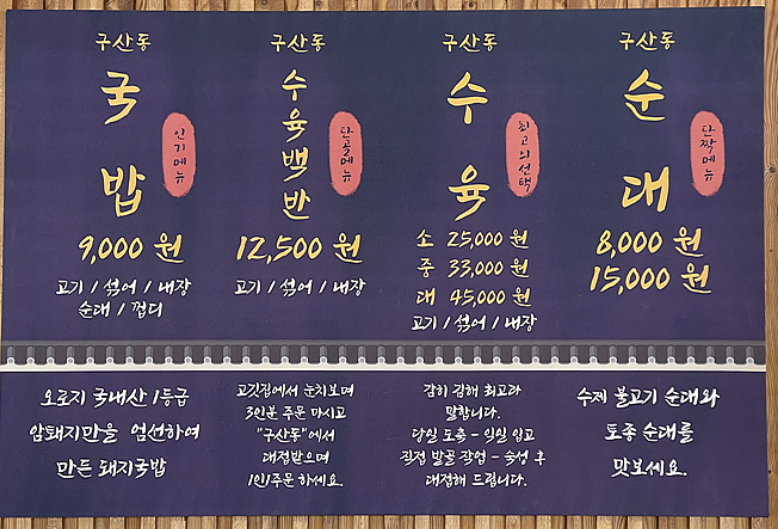 구산동
국밥
인기메뉴
9,000 원
고기 / 섞어 / 내장
순대 / 껍디
오로지 국내산 1등급
암퇘지만을 엄선하여
만든 돼지국밥
구산동
수육백반
단골메뉴
12,500 원
고기 / 섞어 / 내장
고깃집에서 눈치보며
3인분 주문 마시고
"구산동"에서
대접받으며
1인1주문 하세요.
구산동
수육
최고의선택
소 25,000 원
중 33,000 원
대 45,000 원
고기 / 섞어 / 내장
감히 김해 최고라
말합니다.
당일 도축 - 익일 입고
직접 발골 작업 - 숙성 후
대접해 드립니다.
구산동
순대
단짝메뉴
8,000 원
15,000 원
수제 불고기 순대와
토종 순대를
맛보세요.